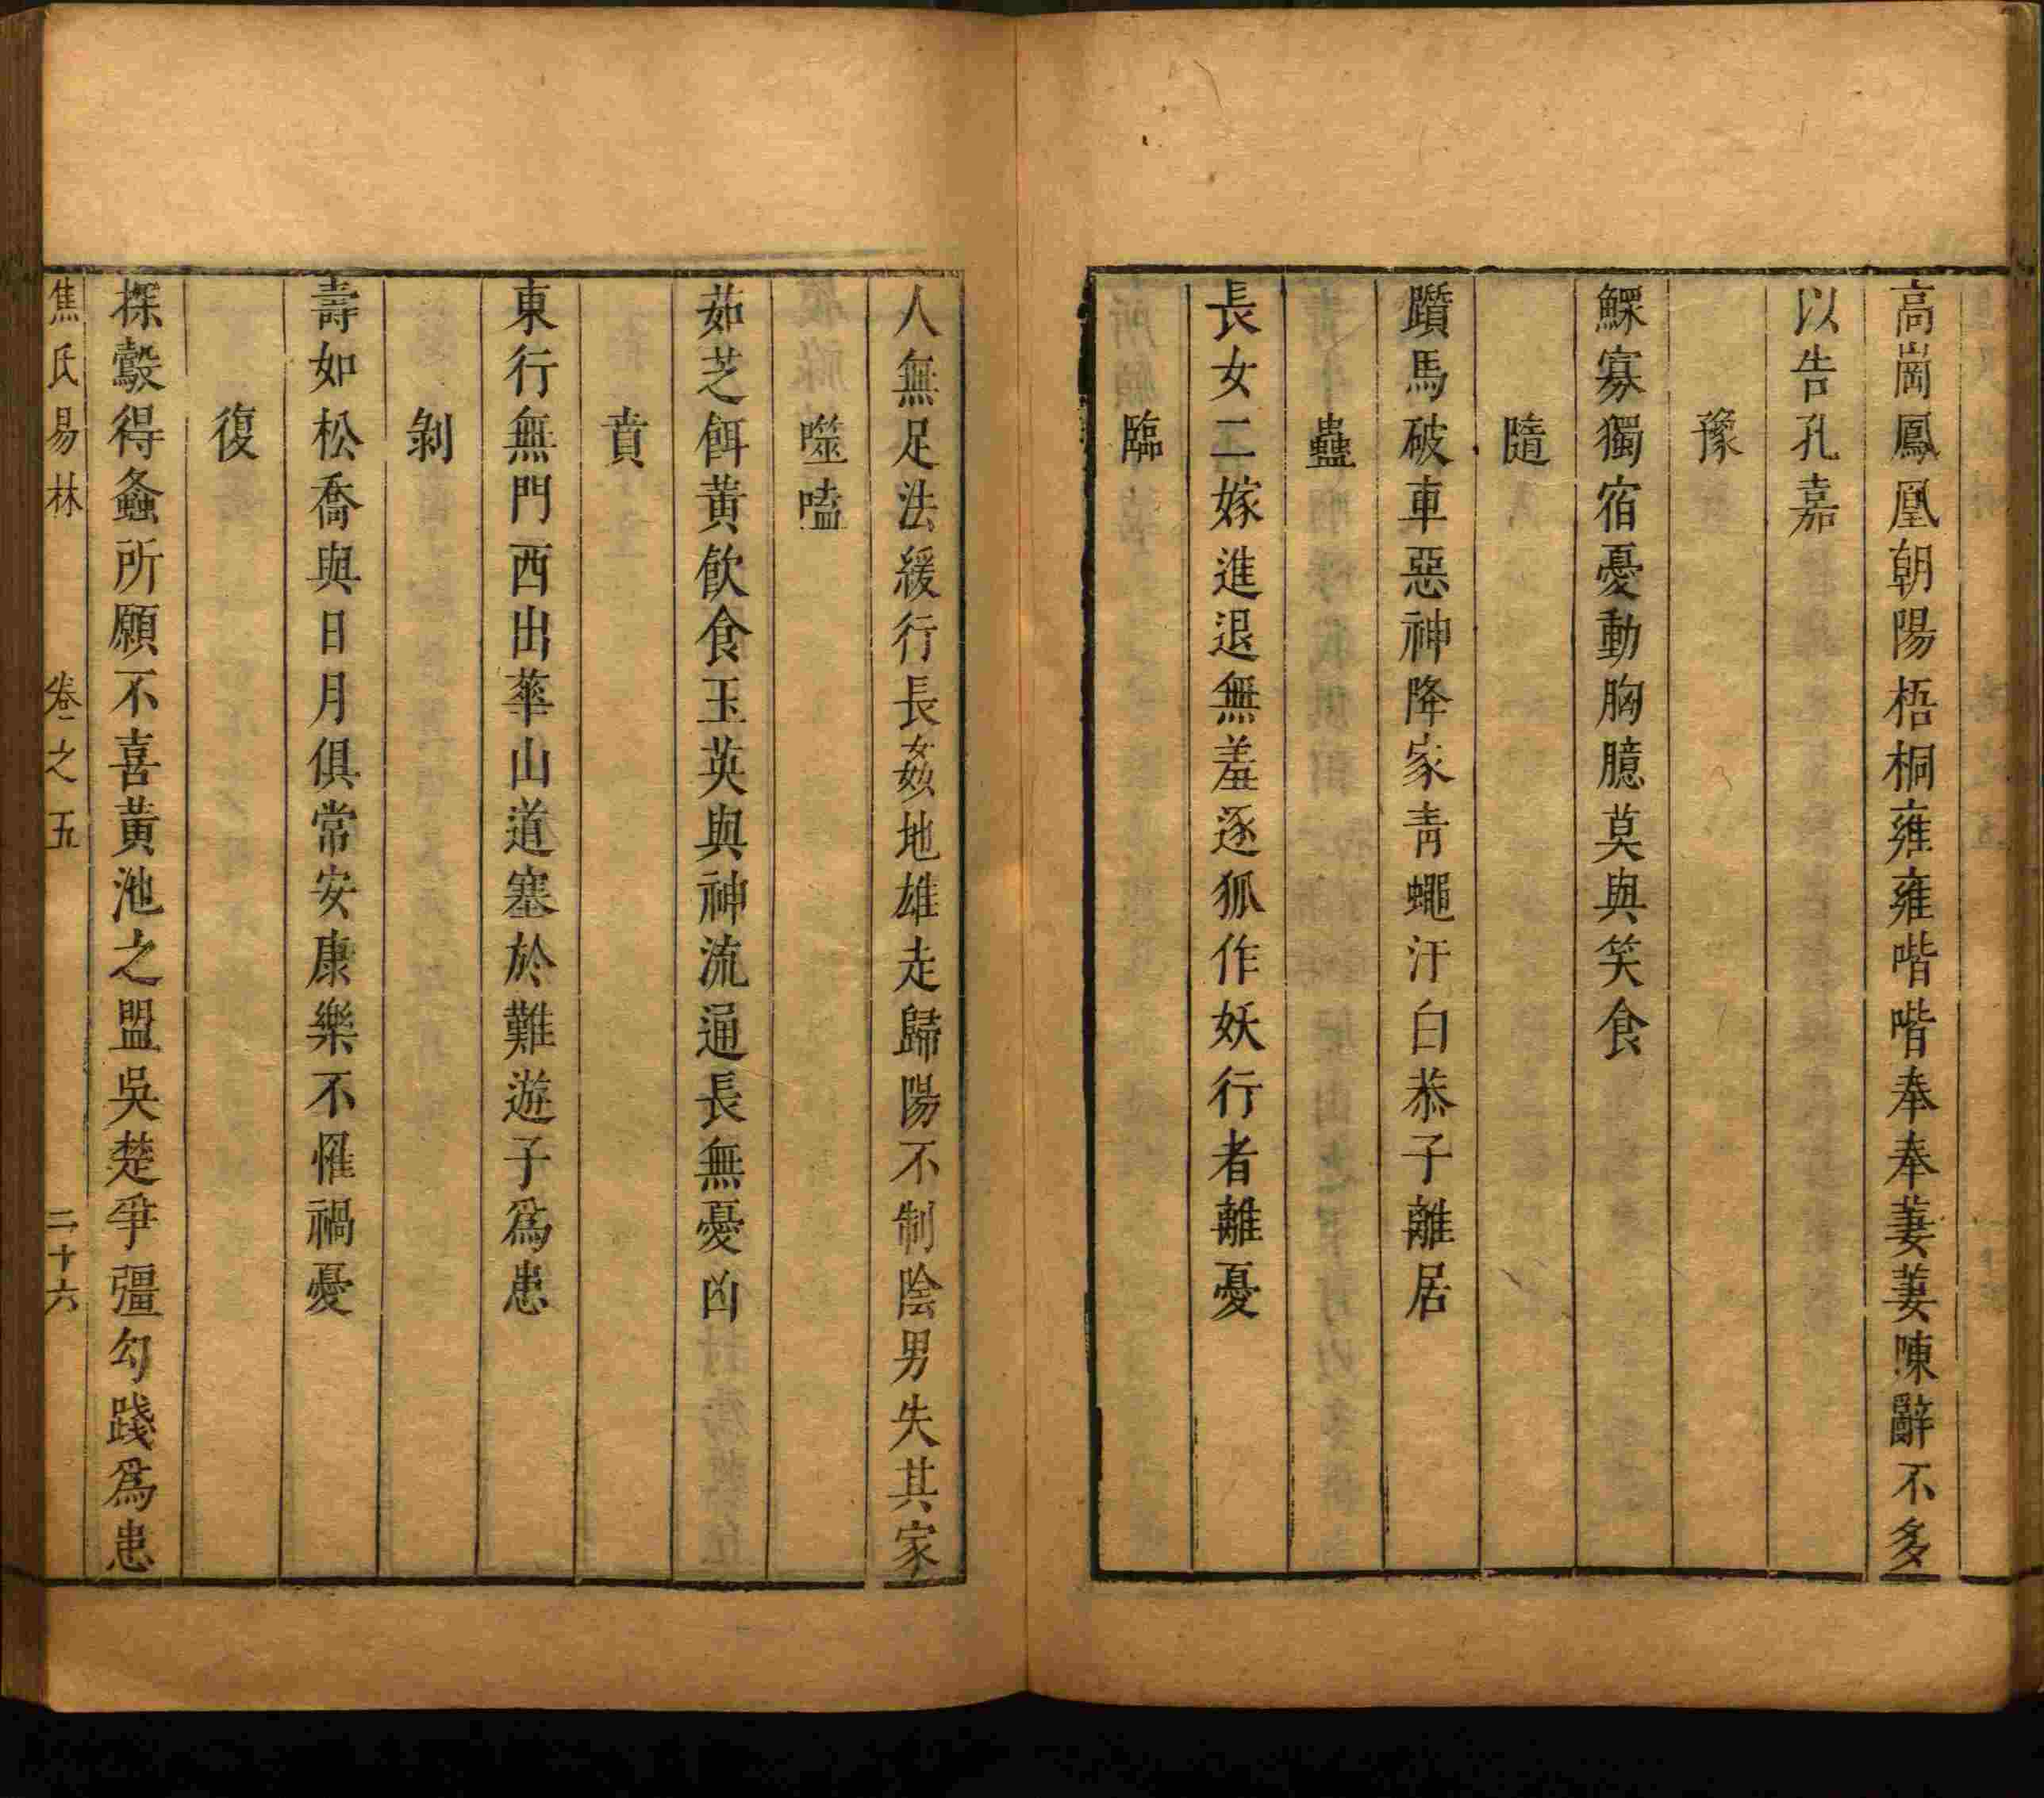 高崗鳳凰朝陽梧桐雍雍喈喈奉奉萋萋陳辭不多
以告孔嘉
豫
鰥寡獨宿憂動胸臆莫與笑食
隨
躓馬破車惡神降家青蠅汙白恭子離居
蠱
長女二嫁進退無羞逐狐作妖行者離憂
臨
人無足法緩行長姦地雄走歸陽不制陰男失其家
噬嗑
茹芝餌黃飲食玉英與神流通長無憂凶
賁
東行無門西出華山道塞於難遊子爲患
剝
壽如松喬與日月俱常安康樂不惟禍憂
復
探鷇得螽所願不喜黃池之盟吳楚爭彊勾踐爲患
焦氏易林 卷之五 二十六